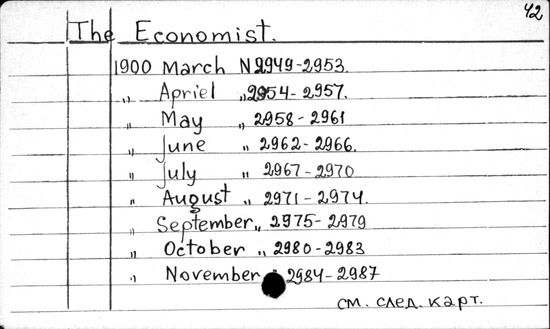 42
The Economist.
1900 March N 2949-2953.
„ Apriel „ 2954-2957.
„ May „ 2958-2961
„ June „ 2962-2966.
„ July „ 2967-2970
„ August „ 2971-2974.
„ September „ 2975-2979
„ October „ 2980-2983
„ November „ 2984-2987
см. след. карт.